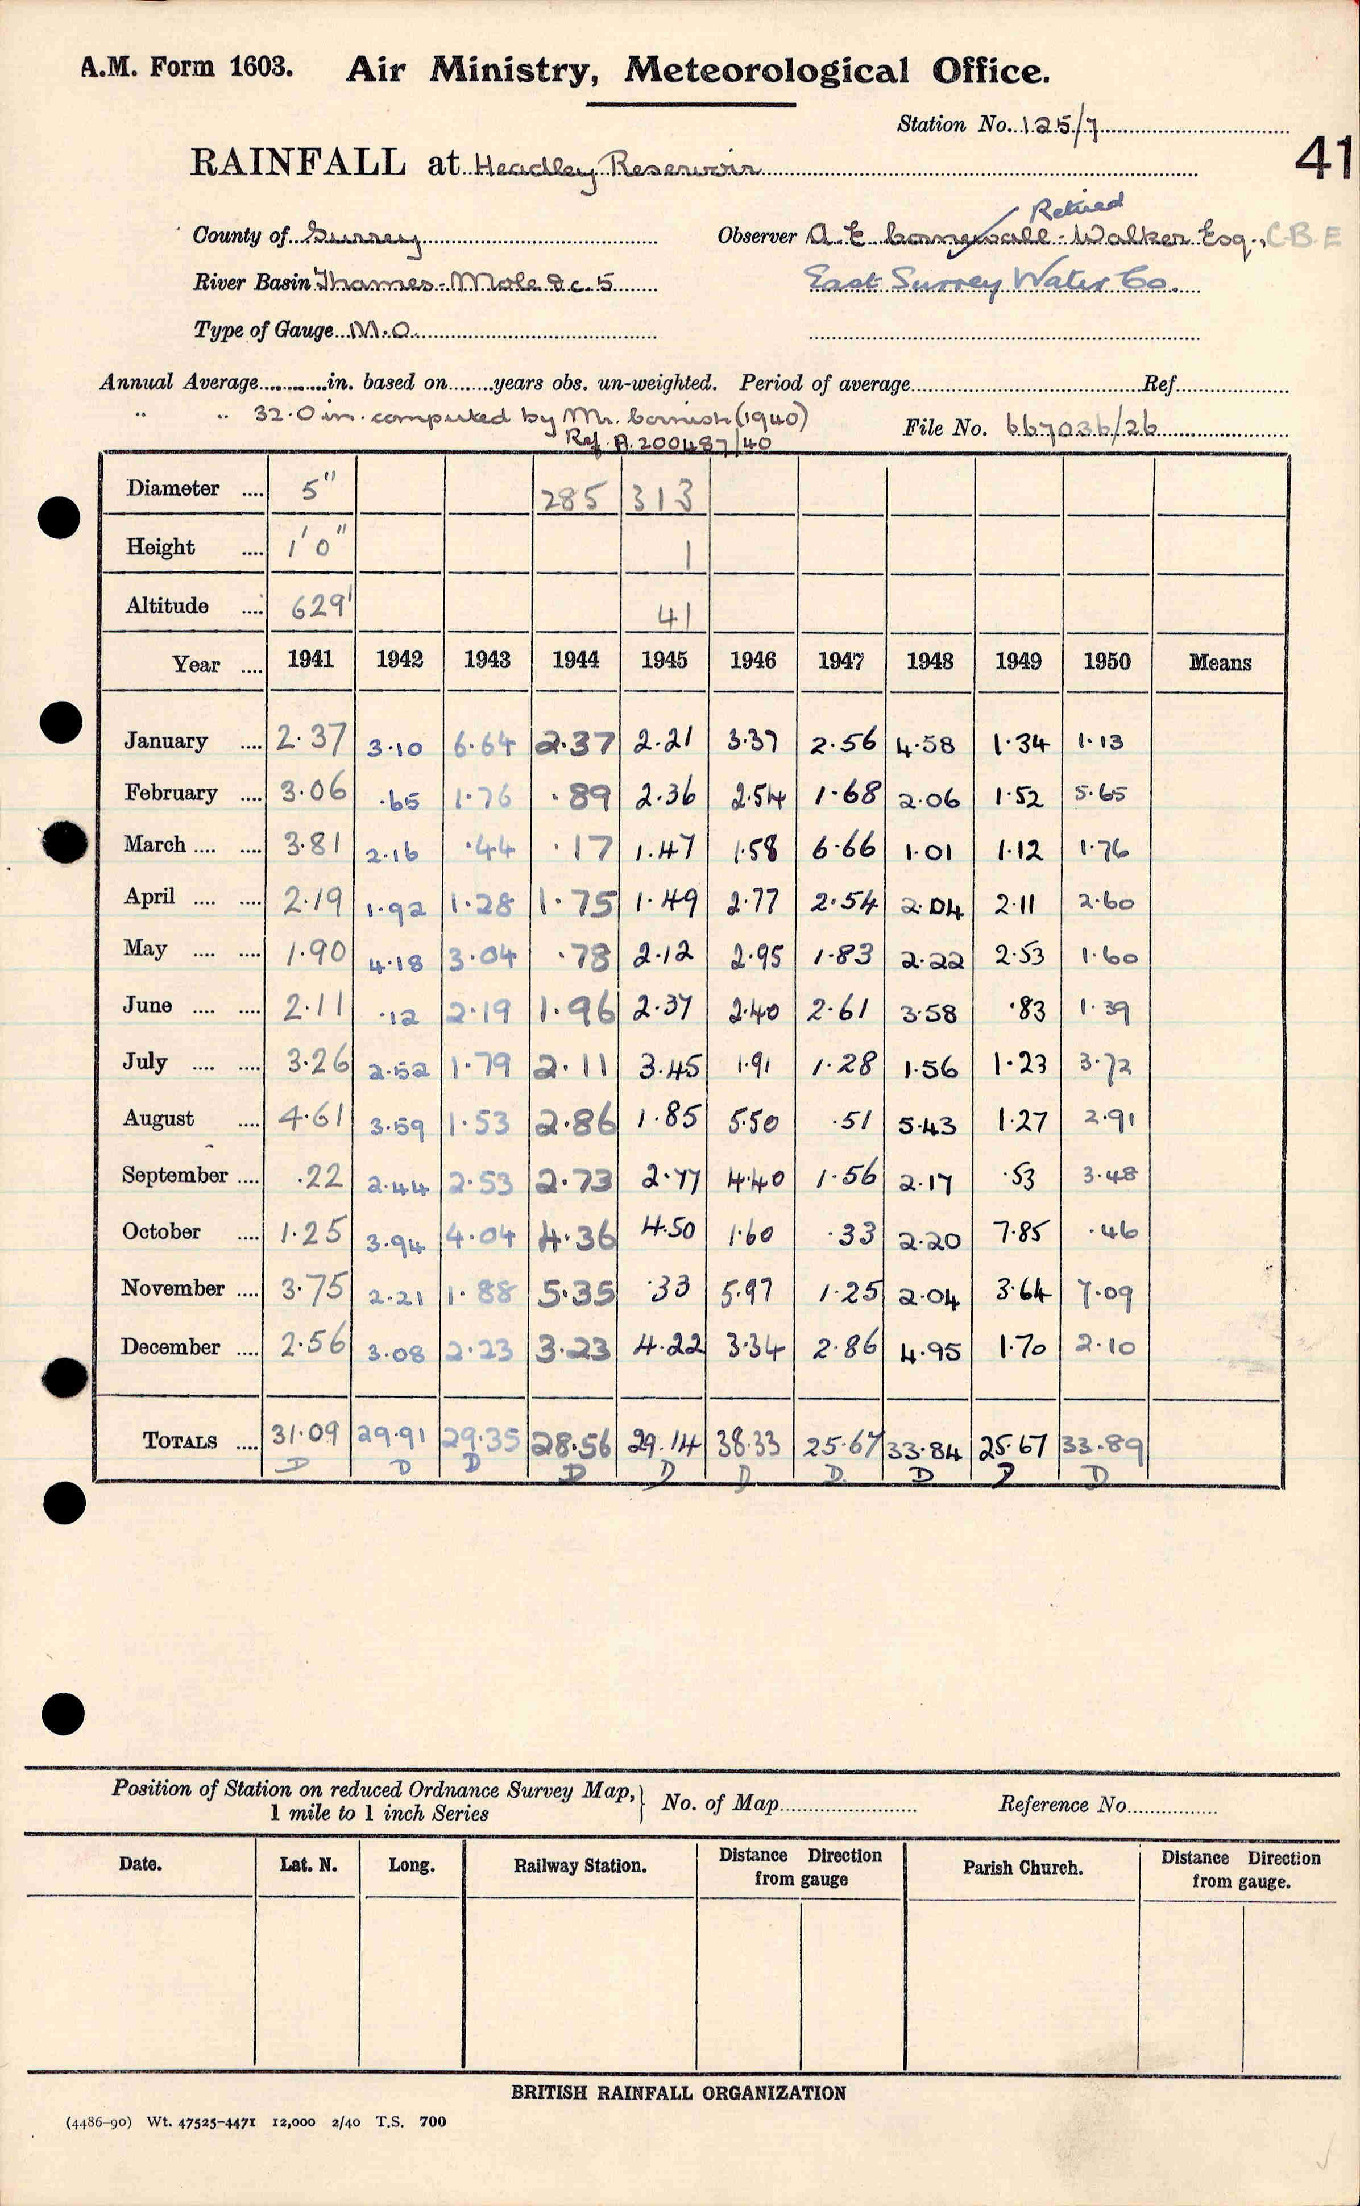 A.M. Form 1603. Air Ministry, Meteorological Office.
Station No. 125/7
RAINFALL at Headley Reservoir
41
Retired
County of Surrey Observer A. E. Cornewall-Walker Esq., C.B.E
River Basin Thames-Mole &c. 5 East Surrey Water Co.
Type of Gauge M.O.
Annual Average in. based on years obs. un-weighted. Period of average Ref.
" " 32.0 in. computed by Mr. Cornish (1940) File No. 667036/26
Ref. A.200487/40
Diameter 5" 285 313
Height 1'0" 1
Altitude 629' 41
Year 1941 1942 1943 1944 1945 1946 1947 1948 1949 1950 Means
January 2.37 3.10 6.64 2.37 2.21 3.37 2.56 4.58 1.34 1.13
February 3.06 .65 1.76 .89 2.36 2.54 1.68 2.06 1.52 5.65
March 3.81 2.16 .44 .17 1.47 1.58 6.66 1.01 1.12 1.76
April 2.19 1.92 1.28 1.75 1.49 2.77 2.54 2.04 2.11 2.60
May 1.90 4.18 3.04 .78 2.12 2.95 1.83 2.22 2.53 1.60
June 2.11 .12 2.19 1.96 2.37 2.40 2.61 3.58 .83 1.39
July 3.26 2.52 1.79 2.11 3.45 1.91 1.28 1.56 1.23 3.72
August 4.61 3.59 1.53 2.86 1.85 5.50 .51 5.43 1.27 2.91
September .22 2.44 2.53 2.73 2.77 4.40 1.56 2.17 .53 3.48
October 1.25 3.94 4.04 4.36 4.50 1.60 .33 2.20 7.85 .46
November 3.75 2.21 1.88 5.35 .33 5.97 1.25 2.04 3.64 7.09
December 2.56 3.08 2.23 3.23 4.22 3.34 2.86 4.95 1.70 2.10
TOTALS 31.09 29.91 29.35 28.56 29.14 38.33 25.67 33.84 25.67 33.89
D D D D D D D. D D D
Position of Station on reduced Ordnance Survey Map, 1 mile to 1 inch Series } No. of Map Reference No.
Date. Lat. N. Long. Railway Station. Distance Direction from gauge Parish Church. Distance Direction from gauge.
BRITISH RAINFALL ORGANIZATION
(4486-90) Wt. 47525-4471 12,000 2/40 T.S. 700